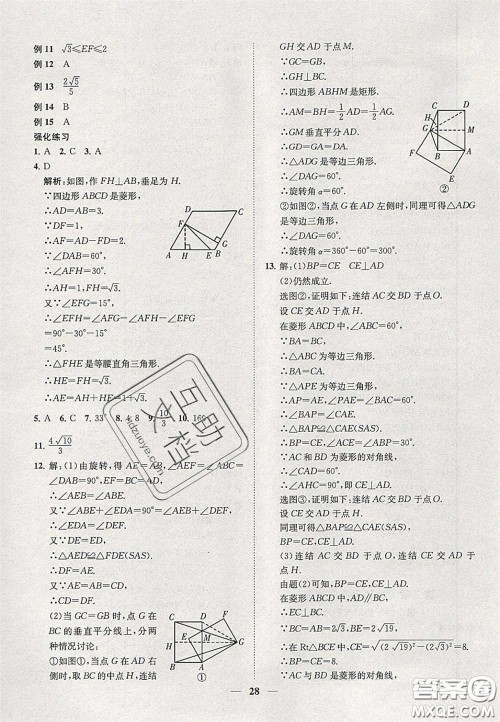 例 11 √3≤EF≤2
例 12 A
例 13 2√5/5
例 14 B
例 15 A
强化练习
1. A 2. C 3. A
4. D
解析:如图,作 FH⊥AB,垂足为 H.
∵四边形 ABCD 是菱形,
∴AD=AB=3.
又∵DF=1,
∴AF=AD-FD=2.
∵∠DAB=60°,
∴∠AFH=30°.
∴AH=1,FH=√3.
又∵∠EFG=90°,
∴∠HFE=∠AFG-∠AFH-∠EFG
=90°-30°-15°
=45°.
∴△FHE 是等腰直角三角形.
∴HE=FH=√3.
∴AE=AH+HE=1+√3.
5. A 6. C 7. 33 8. 4.8 9. 10/3 10. 169
11. 4√10/3
12. 解:(1)由旋转,得 AE=AB,∠AEF=∠ABC=
∠DAB=90°,EF=BC=AD.
∴∠AEB=∠ABE.
又∵∠ABE+∠EDA=90°=∠AEB+∠DEF,
∴∠EDA=∠DEF.
又∵DE=ED,
∴△AED≌△FDE(SAS).
∴DF=AE.
又∵AE=AB=CD,
∴CD=DF.
(2)当 GC=GB 时,点 G 在
BC 的垂直平分线上,分两
种情况讨论:
①如图①,当点 G 在 AD 右
侧时,取 BC 的中点 H,连结
D
C
F
G
A
H
E
B
C
D
F
H
M
G
B
A
E
①
GH 交 AD 于点 M.
∵GC=GB,
∴GH⊥BC.
∴四边形 ABHM 是矩形.
∴AM=BH=1/2 AD=1/2 AG.
∴GM 垂直平分 AD.
∴GD=GA=DA.
∴△ADG 是等边三角形.
∴∠DAG=60°.
∴旋转角 α=60°.
②如图②,当点 G 在 AD 左侧时,同理可得△ADG
是等边三角形,
∴∠DAG=60°.
∴旋转角 α=360°-60°=300°.
C
D
F
G
B
A
E
②
13. 解:(1)BP=CE CE⊥AD
(2)仍然成立.
选图②,证明如下:连结 AC 交 BD 于点 O.
设 CE 交 AD 于点 H.
在菱形 ABCD 中,∠ABC=60°,
∴BA=BC.
∴△ABC 为等边三角形.
∴BA=CA.
∵△APE 为等边三角形,
∴AP=AE,∠PAE=∠BAC=60°.
∴∠BAP=∠CAE.
∴△BAP≌△CAE(SAS).
∴BP=CE,∠ACE=∠ABP=30°.
∵AC 和 BD 为菱形的对角线,
∴∠CAD=60°.
∴∠AHC=90°,即 CE⊥AD.
选图③,证明如下:连结 AC 交 BD 于点 O.
设 CE 交 AD 于点 H.
同理可得△BAP≌△CAE(SAS).
∴BP=CE,CE⊥AD.
(3)连结 AC 交 BD 于点 O,连结 CE 交 AD 于
点 H.
由题(2)可知,BP=CE,CE⊥AD.
在菱形 ABCD 中,AD∥BC,
∴CE⊥BC.
∵BC=AB=2√3,BE=2√19,
∴在 Rt△BCE 中,CE=√((2√19)²-(2√3)²)=8.
∴BP=CE=8.
又∵AC 与 BD 是菱形的对角线,
28
互助文档
答案圈
MXQE.COM